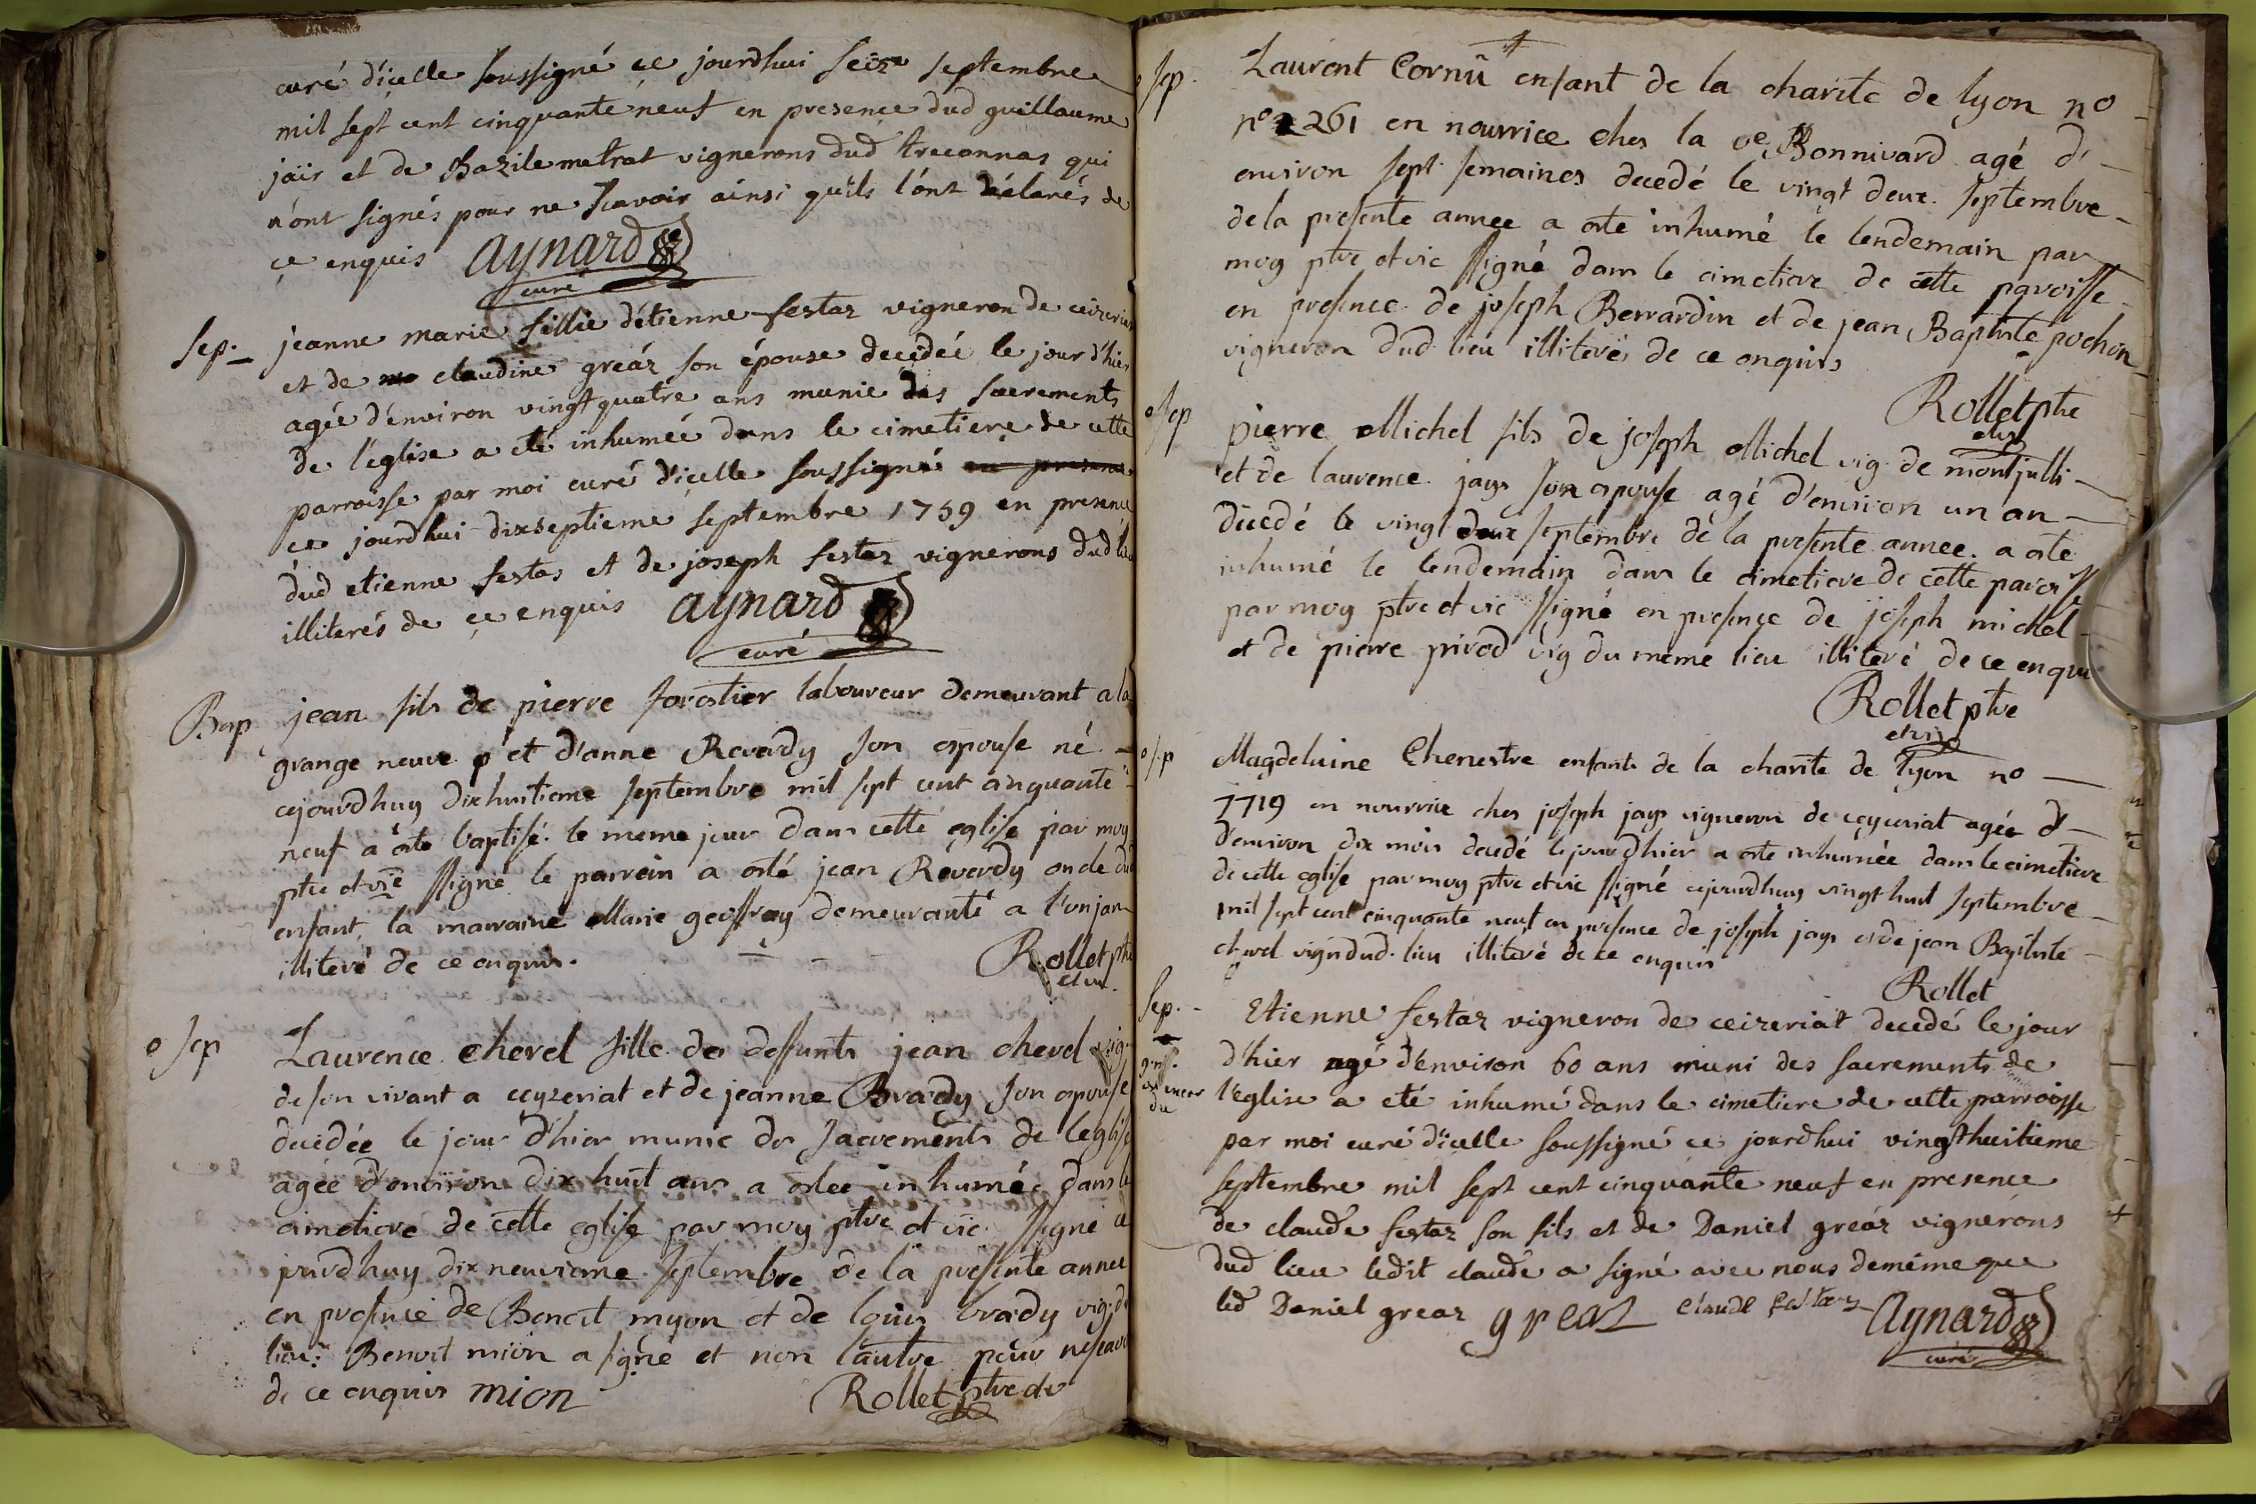 curé d'icelle soussigné ce jourdhui seize septembre
mil sept cent cinquante neuf en presence dud guillaume
jaïr et de Bazile metrat vignerons dud treconnas qui
n'ont signés pour ne scavoir ainsi qu'ils l'ont déclarés de
ce enquis aynard
curé
Sep. jeanne marie fillie d'étienne festaz vigneron de ceizeriat
et de claudine greáz son épouse decedeé le jour d'hier
agée d'environ vingt quatre ans munie des sacrements
de l'eglise a eté inhumeé dans le cimetiere de cette
parroisse par moi curé d'icelle soussigné en presence
ce jourdhui dixseptieme septembre 1759 en presence
dud etienne festas et de joseph festaz vignerons dud lieu
illiterés de ce enquis aynard
curé
Bap jean fils de pierre forestier laboureur demeurant a la
grange neuve p et d'anne Reverdy son espouse né
cejourdhuy dixhuitieme septembre mil sept cent cinquante
neuf a esté baptisé le meme jour dans cette eglise par moy
ptre et vic ssigné le parrein a esté jean Reverdy oncle dud
enfant, la marraine Marie geoffray demeurante a
illiteré de ce enquis. Rollet ptre
et vic.
o sep Laurence chevel fille des deffunts jean chevel vig.
de son vivant a ceyzeriat et de jeanne Brady son espouse
decedée le jour d'hier munie des sacrements de l'eglise
agée d'environ dix huit ans a estee inhumée dans le
cimetiere de cette eglise par moy ptre et vic ssigné ce
jourdhuy dix neuvieme septembre de la presente annee
en presence de Benoit myon et de loüis brady vig. du
lieu: Benoit mion a signé et non l'autre pour ne scavoir
de ce enquis mion Rollet ptre et vic
o sep. Laurent Cornu enfant de la charite de lyon no
no 2261 en nourrice ches la ve Bonnivard agé d'
environ sept semaines decedé le vingt deux septembre
de la presente annee a esté inhumé le lendemain par
moy ptre et vic ssigné dans le cimetiere de cette paroisse
en presence de joseph Berrardin et de jean Baptiste pochon
vigneron dud. lieu illiterés de ce enquis
Rollet ptre
et vic
o sep pierre Michel fils de joseph Michel vig. de montjulli
et de laurence jays son espouse agé d'environ un an
decedé le vingt deux septembre de la presente annee. a esté
inhumé le lendemain dans le cimetiere de cette paroisse
par moy ptre et vic ssigné en presence de joseph michel
et de pierre privod vig du meme lieu illiteré de ce enquis
Rollet ptre
et vic
o sep Magdeleine Chenestre enfant de la charité de lyon no
7719 en nourrice ches joseph jays vigneron de ceyzeriat agée d'
d'environ dix mois decedé le jour d'hier a esté inhumée dans le cimetiere
de cette eglise par moy ptre et vic ssigné cejourdhuy vingt huit septembre
mil sept cent cinquante neuf en presence de joseph jays et de jean Baptiste
chevel vign dud. lieu illiteré de ce enquis
Rollet
Sep. Etienne festaz vigneron de ceizeriat decedé le jour
d'hier agé d'environ 60 ans muni des sacrements de
l'eglise a eté inhumé dans le cimetiere de cette parroisse
par moi curé d'icelle soussigné ce jourdhui vingthuitieme
septembre mil sept cent cinquante neuf en presence
de claude festaz son fils et de Daniel greáz vignerons
dud lieu ledit claude a signé avec nous demême que
led Daniel greaz greaz claude festaz Aynard
curé